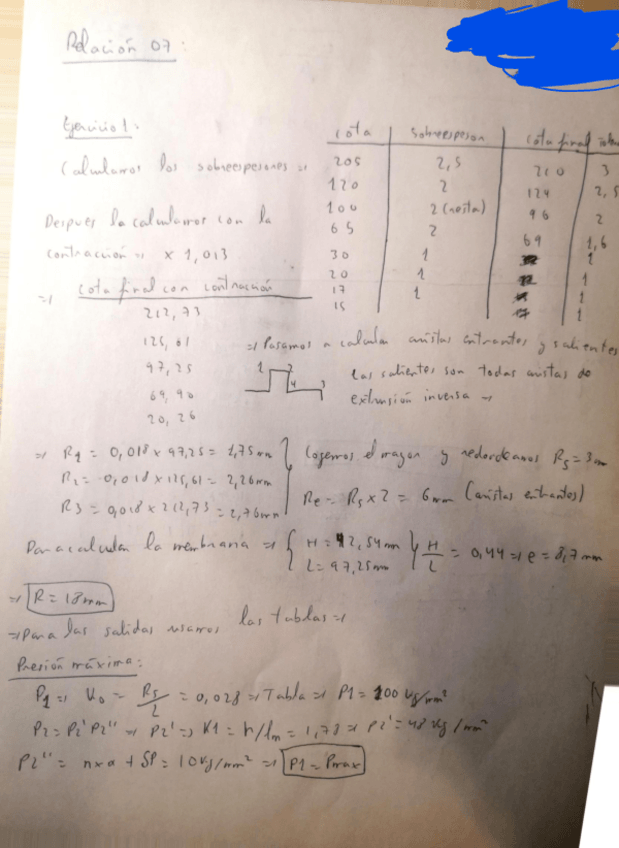 Relación 07:
Ejercicio 1:
Calculamos los sobreespesores =>
Despues la calculamos con la
contracción => x 1,013
cota | Sobreespesor | cota final
205 2,5 210 3
120 2 124 2,5
100 2 (resta) 96 2
65 2 69 1,6
30 1 1
20 1 1
17 1 1
15 1
=> Cota final con contracción
212,73
125,61
97,25
69,90
20,26
=> Pasamos a calcular aristas entrantes y salientes
1 2 4 3
Las salientes son todas aristas de
extrusión inversa =>
=> R1 = 0,018 x 97,25 = 1,75 mm
R2 = 0,018 x 125,61 = 2,26 mm
R3 = 0,018 x 212,73 = 2,76 mm
Cogemos el mayor y redondeamos Rs = 3 mm
Re = Rs x 2 = 6 mm (aristas entrantes)
Para calcular la membrana => { H = 42,54 mm
L = 97,25 mm } H/L = 0,44 => e = 8,7 mm
=> R = 18 mm
=> Para las salidas usamos las tablas =>
Presión máxima:
P1 => K0 = Rs/L = 0,028 => Tabla => P1 = 100 kg/mm²
P2 = P2' P2'' => P2' => K1 = h/lm = 1,78 => P2' = 48 kg/mm²
P2'' = n x a + SP = 10 kg/mm² => P1 = Pmax